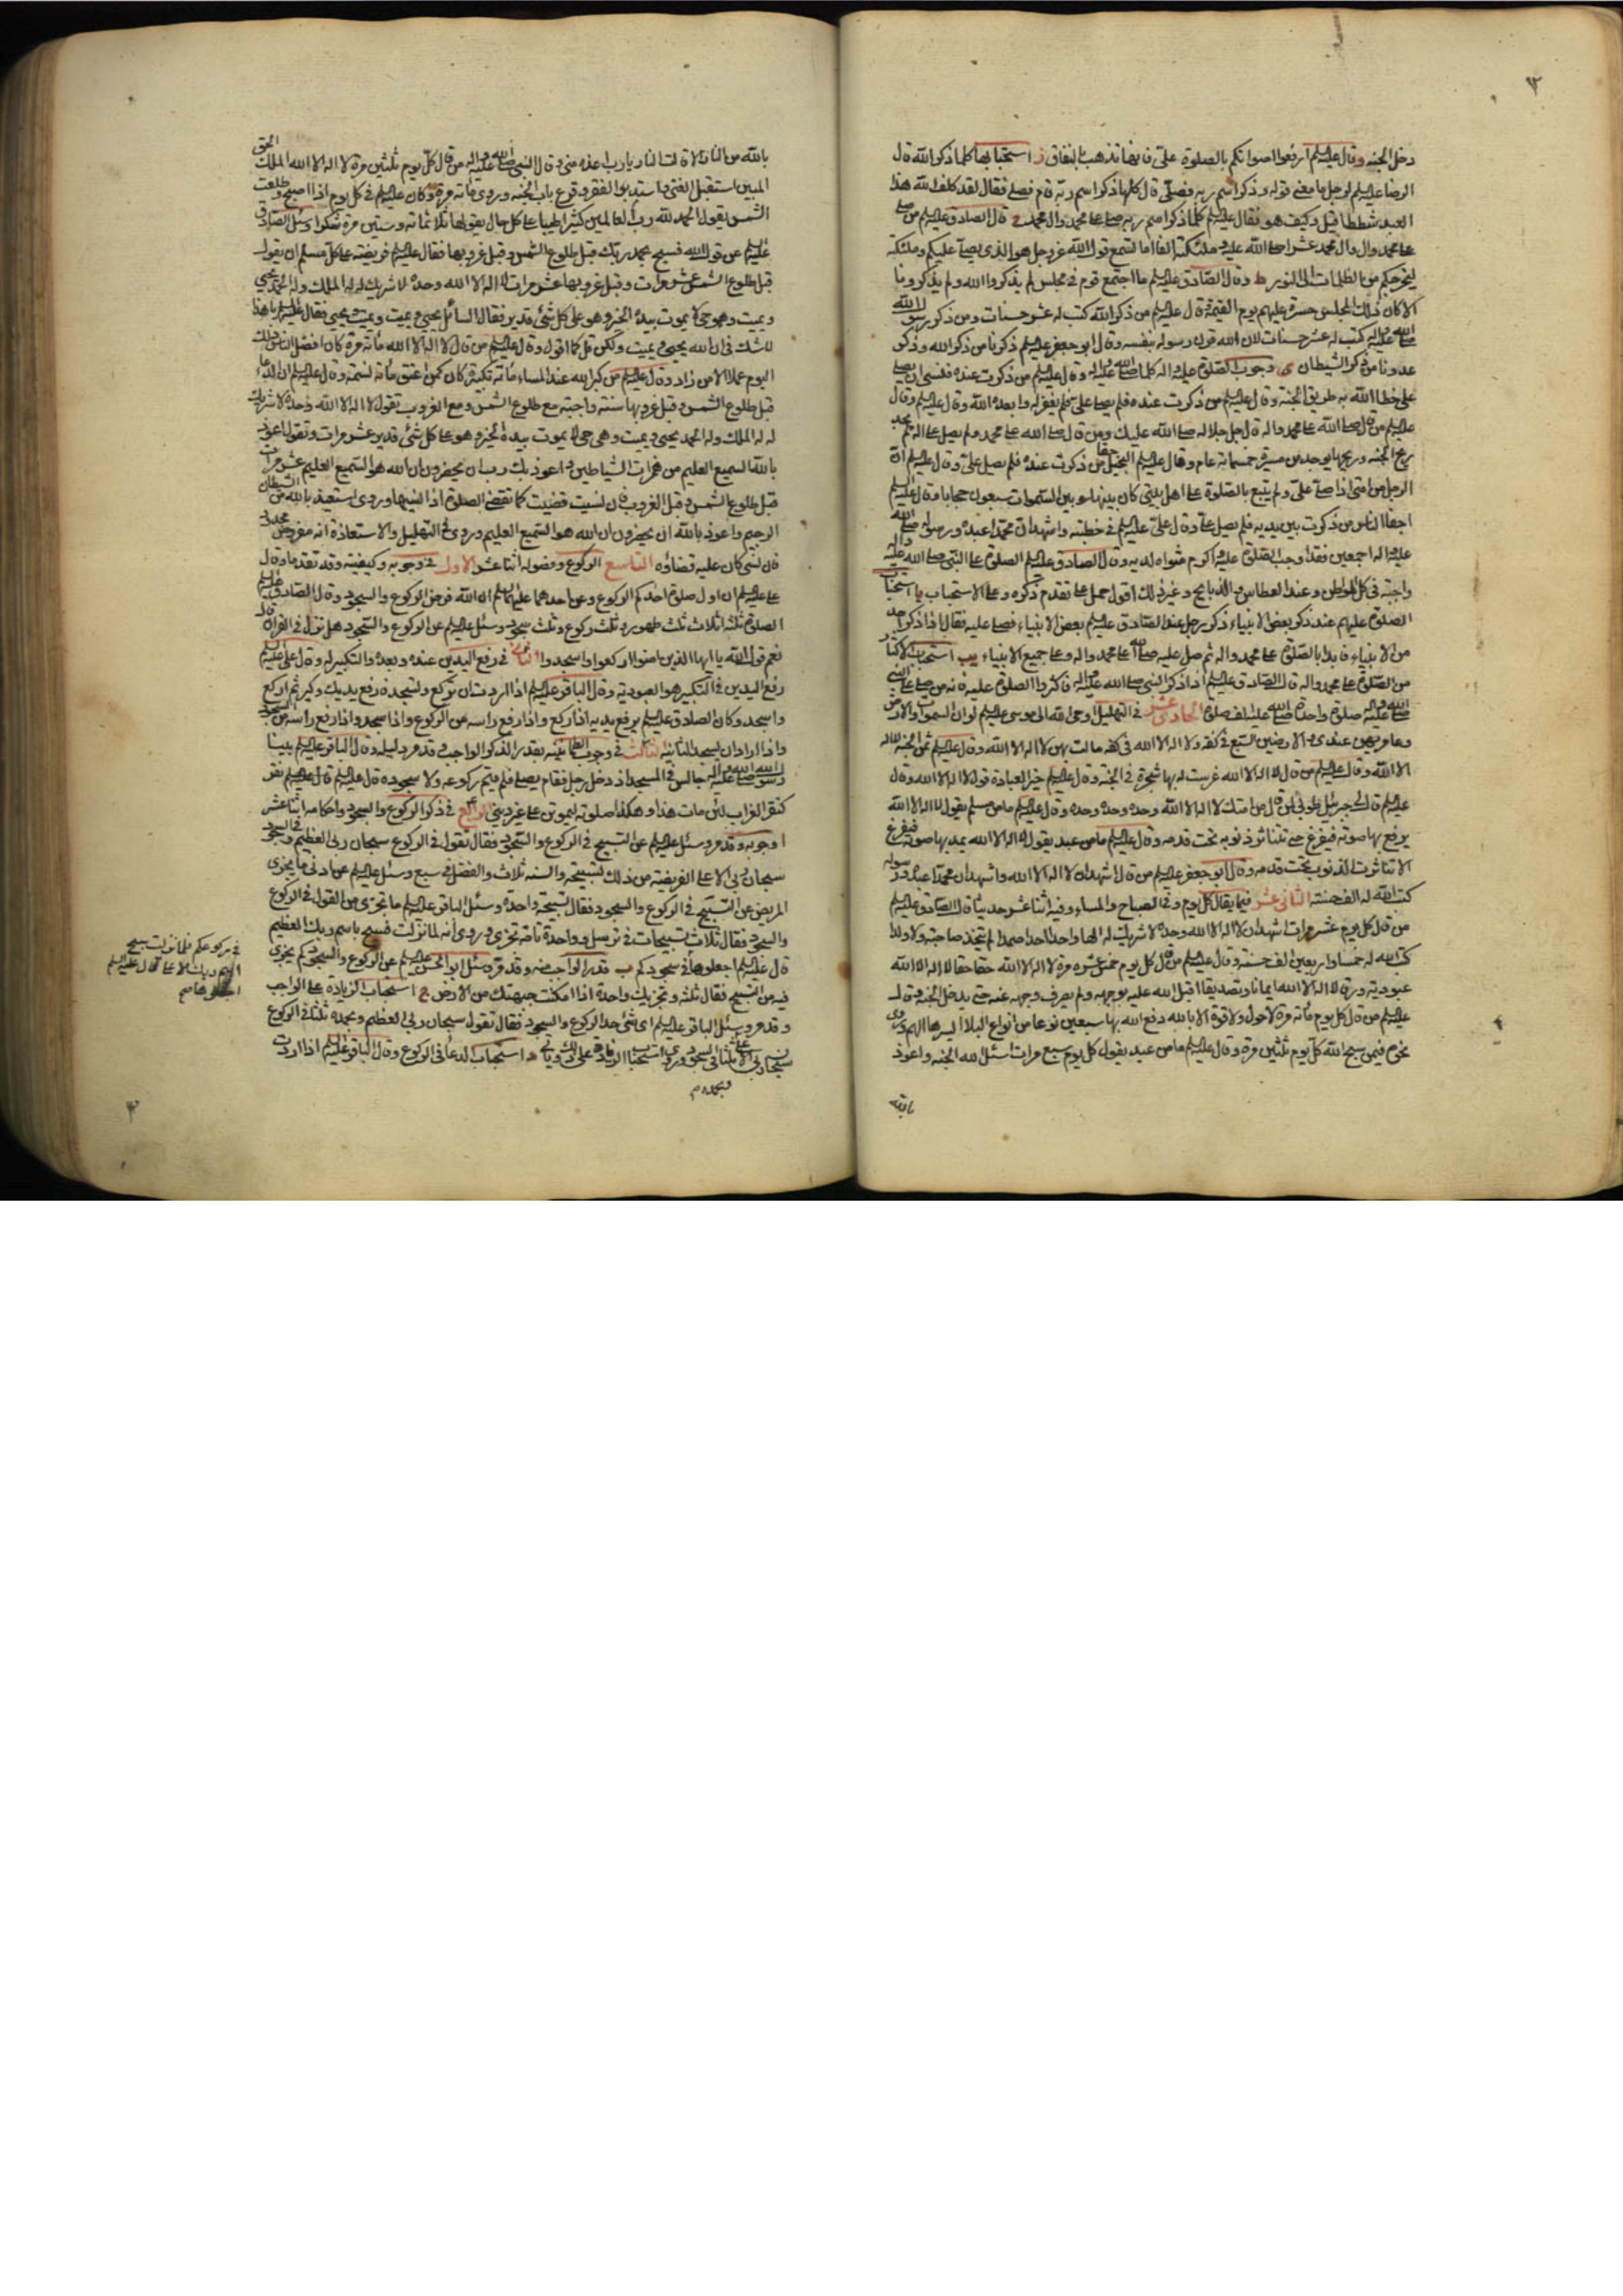 ٩٢
دخل الجنه وقال عليه السلم ارفعوا اصواتكم بالصلوة علي فانها تذهب بالنفاق ز استحبابها كلما ذكر الله قال
الرضا عليه السلم لرجل ما معنى قوله وذكر اسم ربه فصلى قال كلما ذكر اسم ربه قام فصلى فقال لقد كلف الله هذا
العبد شططا قيل وكيف هو فقال عليه السلم كلما ذكر اسم ربه صلى على محمد وال محمد ح قال الصادق عليه السلم من صلى
على محمد وال محمد عشرا صلى الله عليه وملئكته الفا اما تسمع قول الله عز وجل هو الذي يصلي عليكم وملئكته
ليخرجكم من الظلمات الى النور ط وقال الصادق عليه السلم ما اجتمع قوم في مجلس لم يذكروا الله ولم يذكرونا
الا كان ذلك المجلس حسرة عليهم يوم القيمة قال عليه السلم من ذكر الله كتب له عشر حسنات ومن ذكر رسول الله
صلى الله عليه واله كتب له عشر حسنات لان الله قرن رسوله بنفسه وقال ابو جعفر عليه السلم ذكرنا من ذكر الله وذكر
عدونا من ذكر الشيطان ى وجوب الصلوة عليه واله كلما صلى الله عليه واله وقال عليه السلم من ذكرت عنده فنسي ان يصلي
علي خطا الله به طريق الجنة وقال عليه السلم من ذكرت عنده فلم يصل علي فلم يغفر له وابعده الله وقال عليه السلم وقال
عليه السلم من قال صلى الله على محمد واله قال جل جلاله صلى الله عليك ومن قال صلى الله على محمد ولم يصل على اله لم يجد
ريح الجنه وريحها يوجد من مسيرة خمسمائة عام وقال عليه السلم البخيل حقا من ذكرت عنده فلم يصل علي وقال عليه السلم ان
الرجل من امتي اذا صلى علي ولم يتبع بالصلوة على اهل بيتي كان بينها وبين السموات سبعون حجابا وقال عليه السلم
اجفا الناس من ذكرت بين يديه فلم يصل علي وقال علي عليه السلم في خطبته واشهد ان محمدا عبده ورسوله صلى الله
عليه واله اجمعين فقد اوجب الصلوة عليه واكرم مثواه لديه وقال الصادق عليه السلم الصلوة على النبي صلى الله عليه واله
واجبة في كل المواطن وعند العطاس والذبايح وغير ذلك اقول حمل على ما تقدم ذكره وعلى الاستحباب يا استحباب
الصلوة عليهم عند ذكر بعض الانبياء ذكر رجل عند الصادق عليه السلم بعض الانبياء فصلى عليه فقال اذا ذكر احد
من الانبياء فابدا بالصلوة على محمد واله ثم صل عليه صلى الله على محمد واله وعلى جميع الانبياء يب استحباب الاكثار
من الصلوة على محمد واله قال الصادق عليه السلم اذا ذكر النبي صلى الله عليه واله فاكثروا الصلوة عليه فانه من صلى على النبي
صلى الله عليه واله صلوة واحدة صلى الله عليه الف صلوة الحادى عشر في التهليل اوحى الله الى موسى عليه السلم لو ان السموات والارض
وعامريهن عندي والارضين السبع في كفه ولا اله الا الله في كفه مالت بهن لا اله الا الله وقال عليه السلم ثمن الجنه لا اله
الا الله وقال عليه السلم من قال لا اله الا الله غرست له بها شجرة في الجنه وقال عليه السلم خير العبادة قول لا اله الا الله وقال
عليه السلم قال لي جبرئيل طوبى لمن قال من امتك لا اله الا الله وحده وحده وحده وقال عليه السلم ما من مسلم يقول لا اله الا الله
يرفع بها صوته فيفرغ حتى تتناثر ذنوبه تحت قدمه وقال عليه السلم ما من عبد يقول لا اله الا الله يمد بها صوته فيفرغ
الا تناثرت الذنوب تحت قدمه وقال ابو جعفر عليه السلم من قال اشهد ان لا اله الا الله واشهد ان محمدا عبده ورسوله
كتب الله له الف حسنة الثانى عشر فيما يقال كل يوم وفي الصباح والمساء وفيه اثنا عشر حديثا قال الصادق عليه السلم
من قال كل يوم عشر مرات اشهد ان لا اله الا الله وحده لا شريك له الها واحدا احدا صمدا لم يتخذ صاحبة ولا ولدا
كتب الله له خمسا واربعين الف حسنه وقال عليه السلم من قال كل يوم خمس عشره مرة لا اله الا الله حقا حقا لا اله الا الله
عبودية ورقا لا اله الا الله ايمانا وتصديقا اقبل الله عليه بوجهه ولم يصرف وجهه عنه حتى يدخل الجنه وقال
عليه السلم من قال كل يوم مائه مرة لا حول ولا قوة الا بالله دفع الله بها سبعين نوعا من انواع البلا ايسرها الهم وروى
نحوه فيمن سبح الله كل يوم ثلثين مرة وقال عليه السلم ما من عبد يقول كل يوم سبع مرات اسئل الله الجنه واعوذ
بالله
بالله من النار الا قالت النار يا رب اعذه مني وقال النبي صلى الله عليه واله من قال كل يوم ثلثين مرة لا اله الا الله الملك الحق
المبين استقبل الغنى واستدبر الفقر وقرع باب الجنه وروى مائه مرة وكان عليه السلم في كل يوم اذا اصبح وطلعت
الشمس يقول الحمد لله رب العالمين كثيرا طيبا على كل حال يقولها ثلاثمائه وستين مرة شكرا وسئل الصادق
عليه السلم عن قول الله فسبح بحمد ربك قبل طلوع الشمس وقبل غروبها فقال عليه السلم فريضة على كل مسلم ان يقول
قبل طلوع الشمس عشر مرات وقبل غروبها عشر مرات لا اله الا الله وحده لا شريك له له الملك وله الحمد يحيي
ويميت وهو حي لا يموت بيده الخير وهو على كل شئ قدير فقال السائل يحيي ويميت ويميت ويحيي فقال عليه السلم يا هذا
لا شك في ان الله يحيي ويميت ولكن قل كما اقول وقال عليه السلم من قال لا اله الا الله مائه مرة كان افضل الناس ذلك
اليوم عملا الا من زاد وقال عليه السلم من كبر الله عند المساء مائه تكبيرة كان كمن اعتق مائه نسمة وقال عليه السلم ان الدعاء
قبل طلوع الشمس وقبل غروبها سنة واجبة مع طلوع الشمس ومع الغروب تقول لا اله الا الله وحده لا شريك
له له الملك وله الحمد يحيي ويميت وهو حي لا يموت بيده الخير وهو على كل شئ قدير عشر مرات وتقول اعوذ
بالله السميع العليم من همزات الشياطين واعوذ بك رب ان يحضرون ان الله هو السميع العليم عشر مرات
قبل طلوع الشمس وقبل الغروب فان نسيت قضيت كما تقضي الصلوة اذا نسيتها وروى استعيذ بالله من الشيطان
الرجيم واعوذ بالله ان يحضرون ان الله هو السميع العليم وروى في التهليل والاستعاذة انه مفروض محدود
فان نسي كان عليه قضاؤه التاسع الركوع وفصوله اثنا عشر الاول في وجوبه وكيفيته وقد تقدما وقال
علي عليه السلم ان اول صلوة احدكم الركوع وعن احدهما عليهما السلم ان الله فرض الركوع والسجود وقال الصادق عليه السلم
الصلوة ثلثه اثلاث ثلث طهور وثلث ركوع وثلث سجود وسئل عليه السلم عن الركوع والسجود هل نزل في القران قال
نعم قول الله يا ايها الذين امنوا اركعوا واسجدوا الثانى في رفع اليدين عنده وبعده والتكبير له وقال علي عليه السلم
رفع اليدين في التكبير هو العبودية وقال الباقر عليه السلم اذا اردت ان تركع وتسجد فارفع يديك وكبر ثم اركع
واسجد وكان الصادق عليه السلم يرفع يديه اذا ركع واذا رفع راسه من الركوع واذا سجد واذا رفع راسه من السجود
واذا اراد ان يسجد الثانية الثالث في وجوب الطمانينه بقدر الذكر الواجب وقد مر دليله وقال الباقر عليه السلم بينا
رسول الله صلى الله عليه واله جالس في المسجد اذ دخل رجل فقام يصلي فلم يتم ركوعه ولا سجوده قال عليه السلم نقر
كنقر الغراب لئن مات هذا وهكذا صلوته ليموتن على غير ديني الرابع في ذكر الركوع والسجود واحكامه اثنا عشر
ا وجوبه وقد مر وسئل عليه السلم عن التسبيح في الركوع والسجود فقال تقول في الركوع سبحان ربي العظيم وفي السجود
سبحان ربي الاعلى الفريضة من ذلك تسبيحة والسنه ثلاث والفضل في سبع وسئل عليه السلم عن ادنى ما يجزى
المريض عن التسبيح في الركوع والسجود فقال تسبيحة واحدة وسئل الباقر عليه السلم ما يجزى من القول في الركوع
والسجود فقال ثلاث تسبيحات في ترسل وواحدة تامة تجزى وروى انه لما نزلت فسبح باسم ربك العظيم
قال عليه السلم اجعلوها في سجودكم ب قدر الواجب منه وقد مر وسئل ابو الحسن عليه السلم عن الركوع والسجود كم يجزى
فيه من التسبيح فقال ثلثه وتجزيك واحدة اذا امكنت جبهتك من الارض ج استحباب الزيادة على الواجب
وقد مر وسئل الباقر عليه السلم اى شئ حد الركوع والسجود فقال تقول سبحان ربي العظيم وبحمده ثلثا في الركوع
سبحان ربي الاعلى وبحمده ثلثا في السجود وروى استحباب الزيادة على ذلك وياتى د استحباب الدعا في الركوع وقال الباقر عليه السلم اذا اردت
في ركوعكم فلما نزلت سبح
اسم ربك الاعلى قال عليه السلم
اجعلوها صح